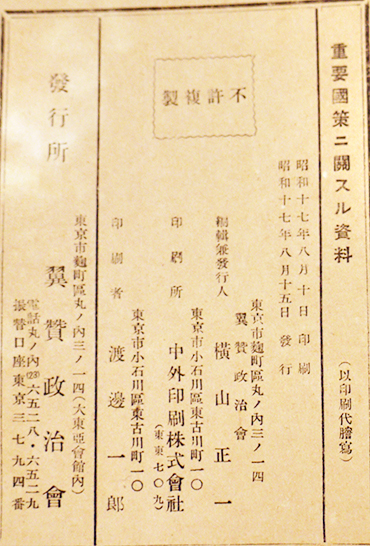 重要國策ニ關スル資料
(以印刷代謄寫)
不許複製
昭和十七年八月十日印刷
昭和十七年八月十五日發行
東京市麴町區丸ノ內三ノ一四
翼贊政治會
編輯兼發行人 橫山正一
東京市小石川區東古川町一〇
印刷所 中外印刷株式會社
(東東七〇九)
東京市小石川區東古川町一〇
印刷者 渡邊一郞
東京市麴町區丸ノ內三ノ一四(大東亞會館內)
發行所 翼贊政治會
電話丸ノ內(23)六五二八・六五二九
振替口座東京三七九四番